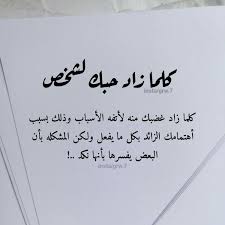 كلما زاد حبك لشخص
instaigne7
كلما زاد غضبك منه لأتفه الأسباب وذلك بسبب
أهتمامك الزائد بكل ما يفعل ولكن المشكله بأن
البعض يفسرها بأنها نكد ..!
instaigne7